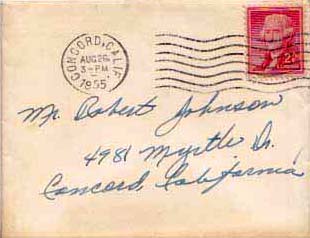 CONCORD, CALIF.
AUG 26
3 - PM
1955
2¢
Mr. Robert Johnson
4981 Myrtle Dr.
Concord, California